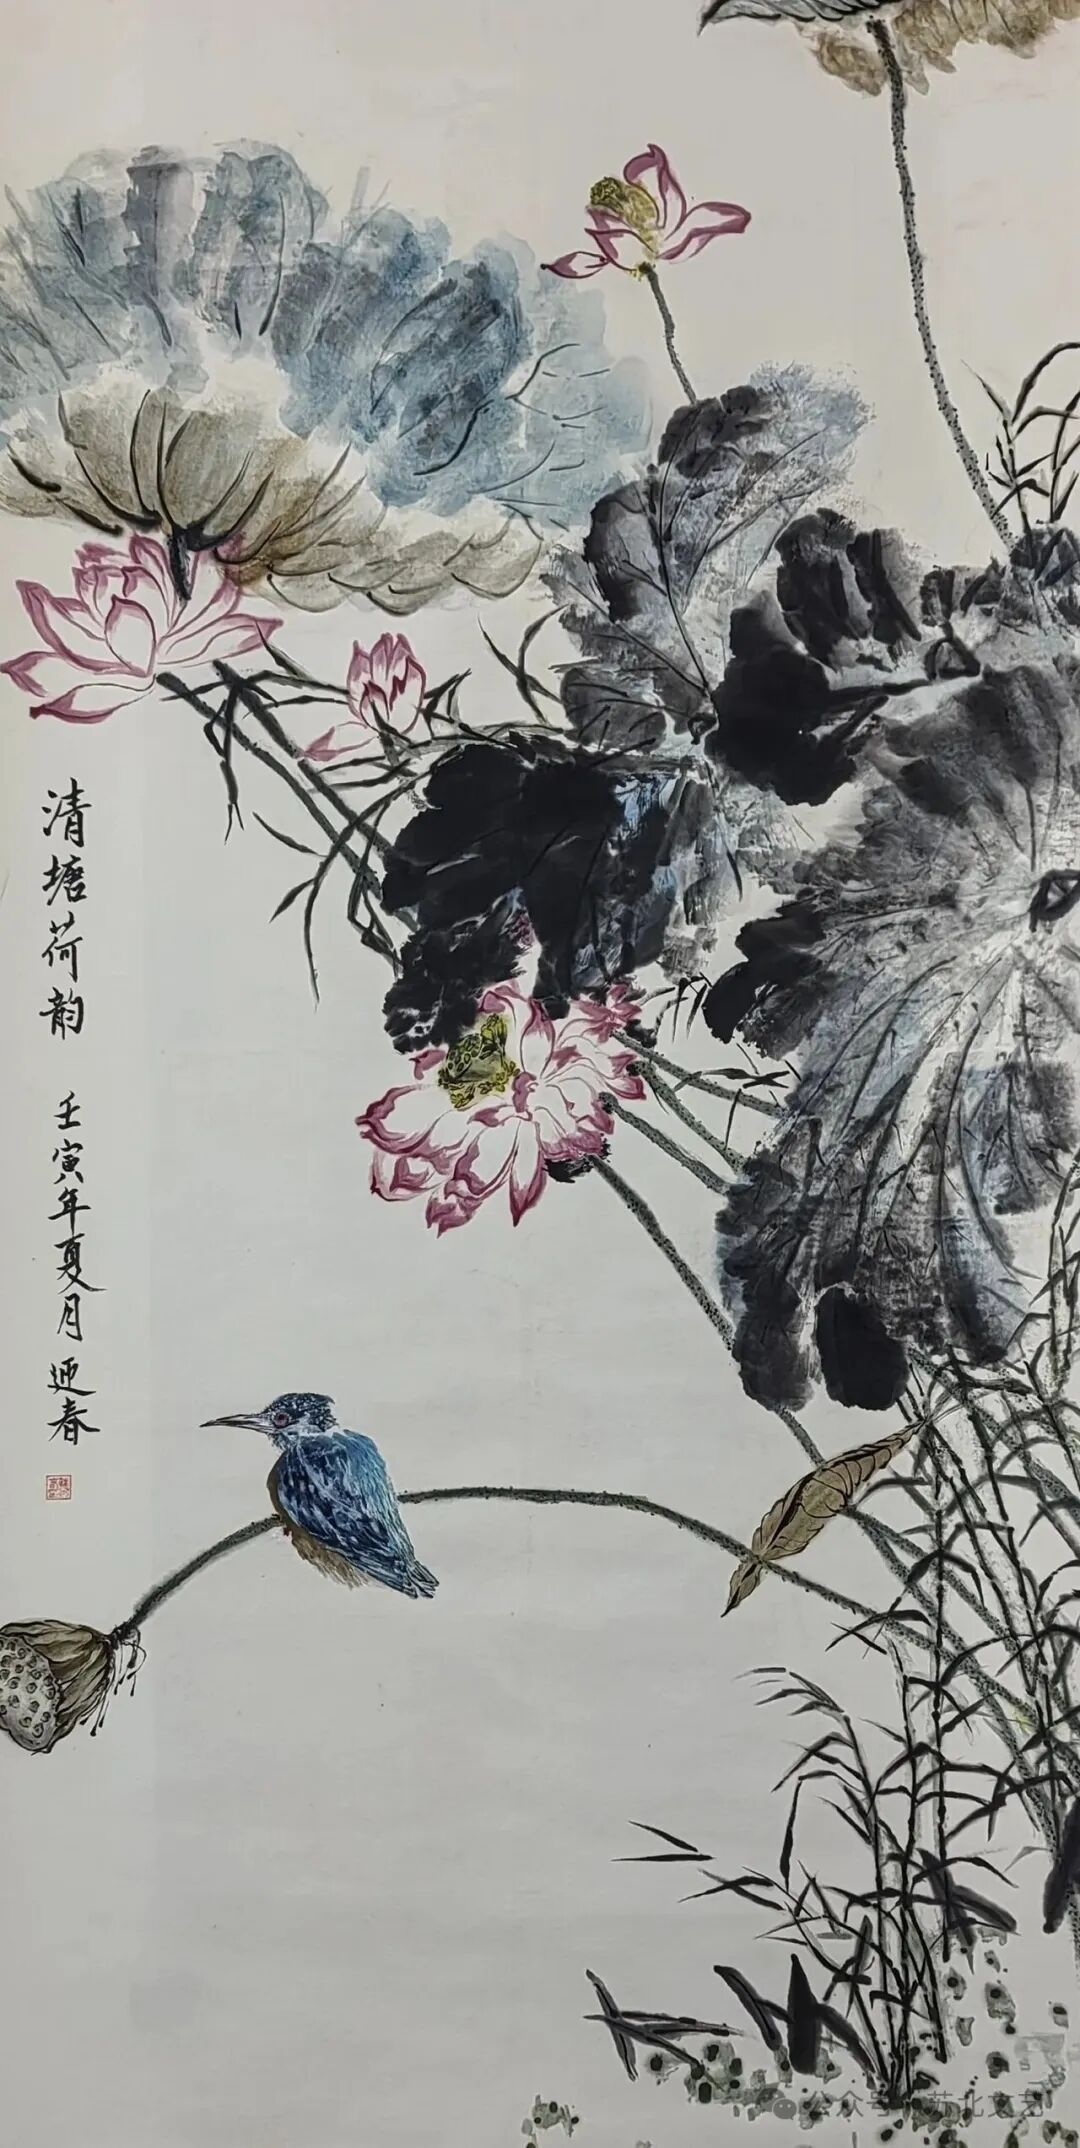 清塘荷韵 壬寅年夏月 迎春
公众号 苏北文艺